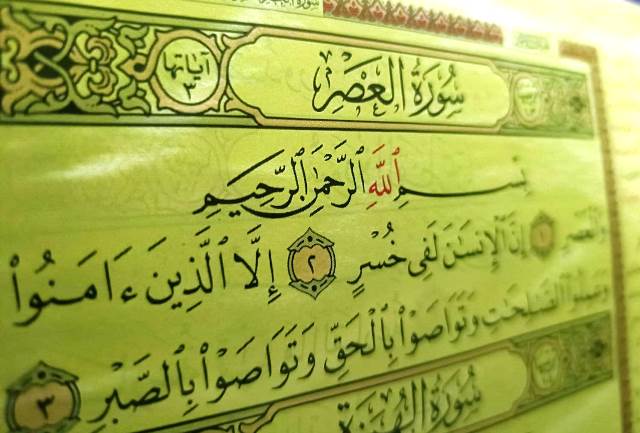 سُورَةُ العَصْرِ
آيَاتُهَا ٣
بِسْمِ ٱللَّهِ ٱلرَّحْمَٰنِ ٱلرَّحِيمِ
وَٱلْعَصْرِ ١ إِنَّ ٱلْإِنسَٰنَ لَفِى خُسْرٍ ٢ إِلَّا ٱلَّذِينَ ءَامَنُوا۟
وَعَمِلُوا۟ ٱلصَّٰلِحَٰتِ وَتَوَاصَوْا۟ بِٱلْحَقِّ وَتَوَاصَوْا۟ بِٱلصَّبْرِ ٣
سُورَةُ الهُمَزَةِ